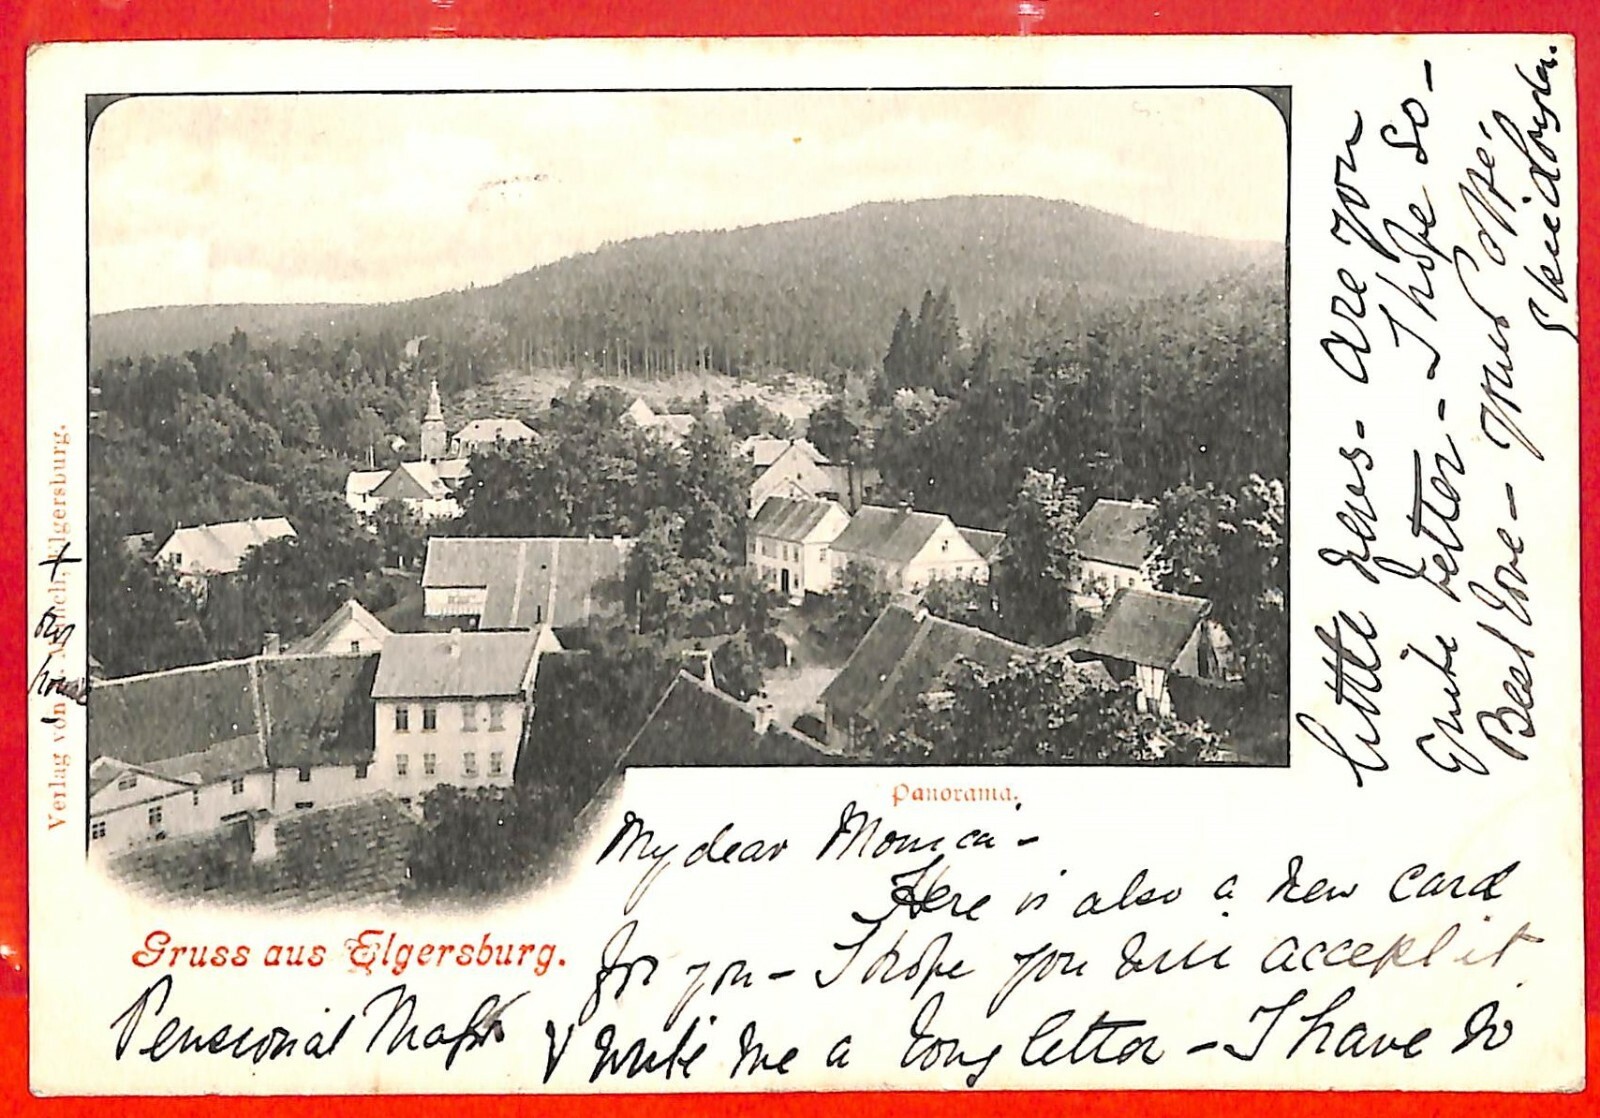 Verlag von Elgersburg.
our
house
Panorama.
Gruss aus Elgersburg.
My dear Monica -
Here is also a new card
for you - I hope you will accept it
& write me a long letter - I have so
little news - are you
quite better - I hope so -
Best love - your
Pensionat